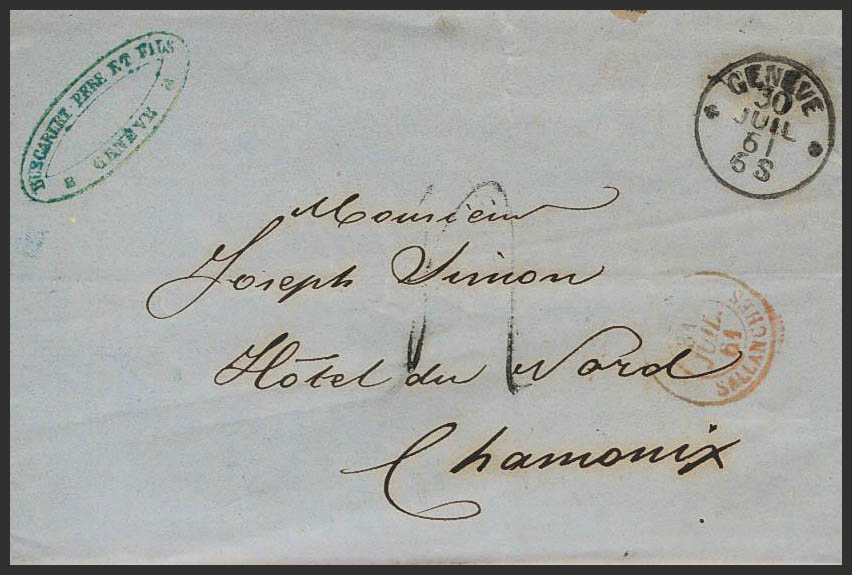 PERE ET FILS
GENÈVE
GENÈVE
30
JUIL
61
6 S
Monsieur
Joseph Simon
Hôtel du Nord
Chamonix
31
JUIL.
61
SALLANCHES